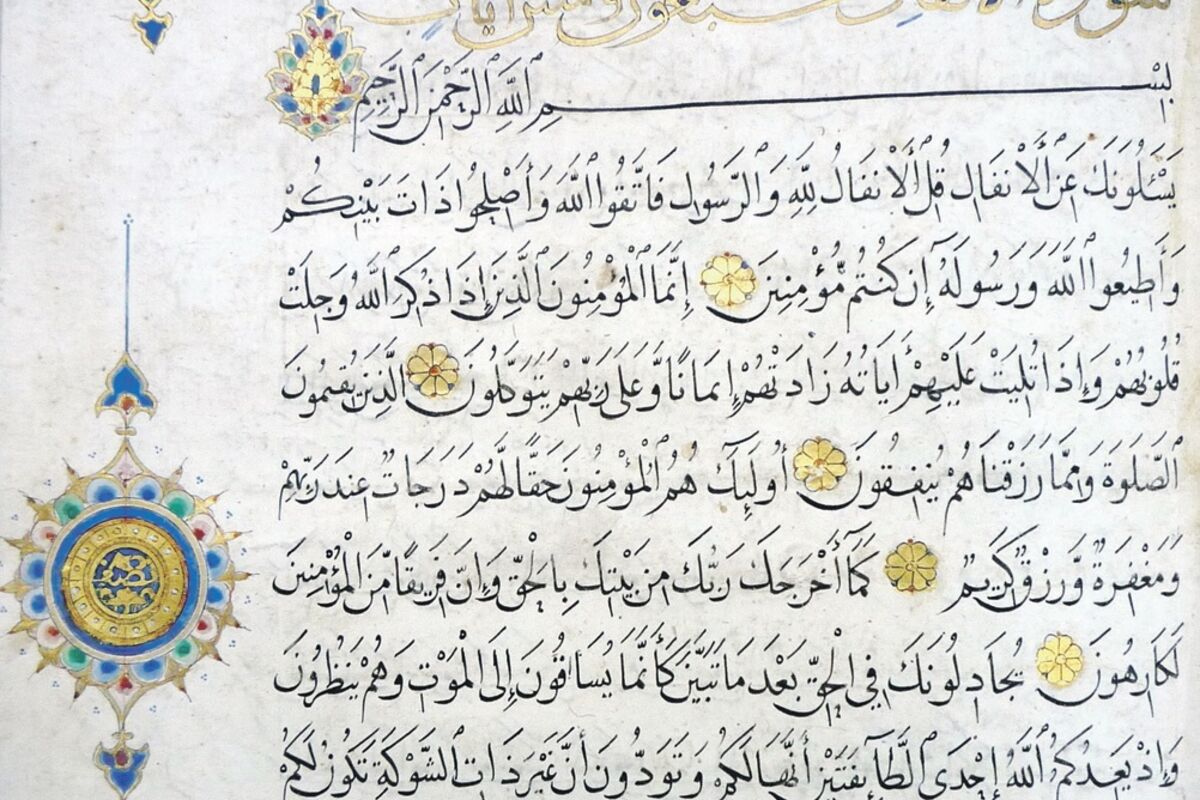 سورة الانفال سبعون وخمس ايات
بِسْمِ ٱللَّهِ ٱلرَّحْمٰنِ ٱلرَّحِيمِ
يَسْـَٔلُونَكَ عَنِ ٱلْأَنفَالِ قُلِ ٱلْأَنفَالُ لِلَّهِ وَٱلرَّسُولِ فَٱتَّقُوا ٱللَّهَ وَأَصْلِحُوا ذَاتَ بَيْنِكُمْ
وَأَطِيعُوا ٱللَّهَ وَرَسُولَهُ إِن كُنتُم مُّؤْمِنِينَ إِنَّمَا ٱلْمُؤْمِنُونَ ٱلَّذِينَ إِذَا ذُكِرَ ٱللَّهُ وَجِلَتْ
قُلُوبُهُمْ وَإِذَا تُلِيَتْ عَلَيْهِمْ أٰيَاتُهُ زَادَتْهُمْ إِيمَانًا وَّعَلَى رَبِّهِمْ يَتَوَكَّلُونَ ٱلَّذِينَ يُقِيمُونَ
ٱلصَّلٰوةَ وَمِمَّا رَزَقْنَاهُمْ يُنفِقُونَ أُولَٰٓئِكَ هُمُ ٱلْمُؤْمِنُونَ حَقًّا لَّهُمْ دَرَجَاتٌ عِندَ رَبِّهِمْ
وَمَغْفِرَةٌ وَّرِزْقٌ كَرِيمٌ كَمَآ أَخْرَجَكَ رَبُّكَ مِن بَيْتِكَ بِالْحَقِّ وَإِنَّ فَرِيقًا مِّنَ ٱلْمُؤْمِنِينَ
لَكَارِهُونَ يُجَادِلُونَكَ فِي ٱلْحَقِّ بَعْدَ مَا تَبَيَّنَ كَأَنَّمَا يُسَاقُونَ إِلَى ٱلْمَوْتِ وَهُمْ يَنظُرُونَ
وَإِذْ يَعِدُكُمُ ٱللَّهُ إِحْدَى ٱلطَّآئِفَتَيْنِ أَنَّهَا لَكُمْ وَتَوَدُّونَ أَنَّ غَيْرَ ذَاتِ ٱلشَّوْكَةِ تَكُونُ لَكُمْ